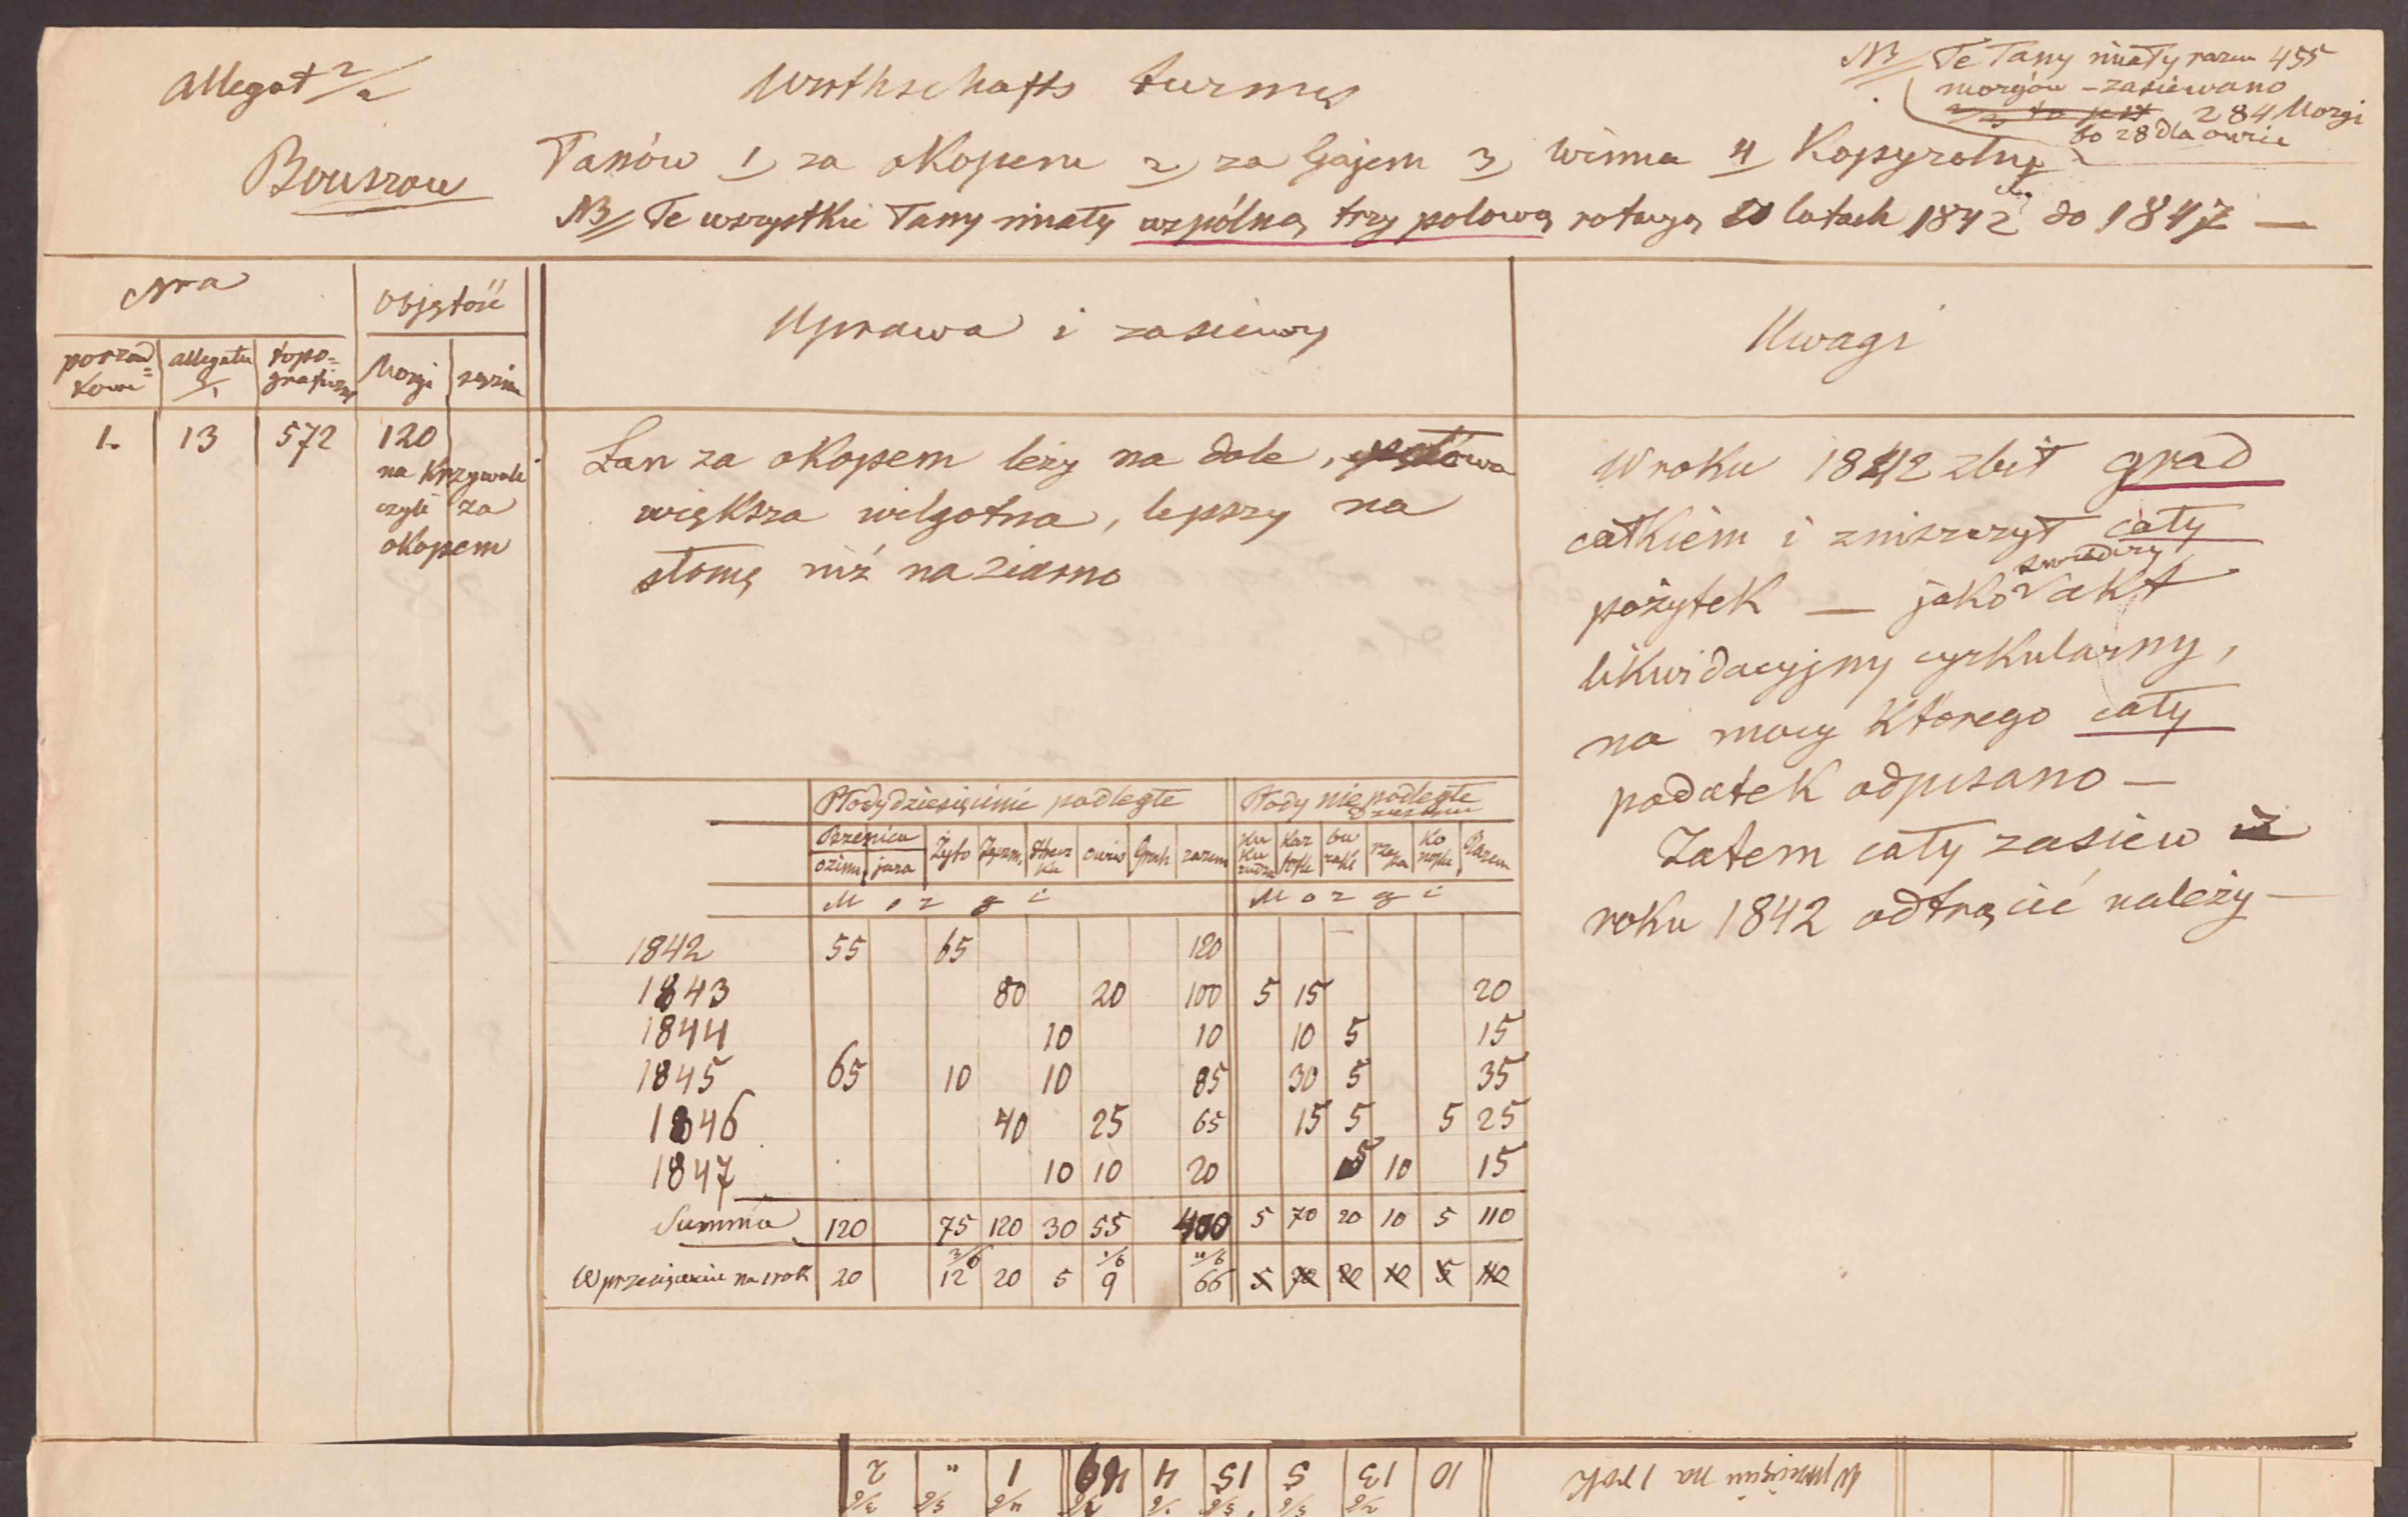 Allegat 2/2
Bouszow
Wirthschafts turnus
Łanów 1, za okopem 2, za Gajem 3, Winna 4 Kopyrotny
NB Te wszystkie łany miały wspólną trzy polową rotacyą w latach 1842 do 1847 —
NB Te łany miały razem 455
morgów – zasiewano
284 Morgi
bo 28 dla owiec
Nra
Objętość
Uprawa i zasiewy
Uwagi
porząd=
kowe
allegatu
topo=
graficzny
Morgi
sążnie
1. 13 572 120
na Krzywuli
czyli za
okopem
Łan za okopem leży na dole, połowa
większa wilgotna, lepszy na
słomę niż na ziarno
W roku 1842 zbił grad
całkiem i zniszczył cały
pożytek — jako świadczy akt
likwidacyjny cyrkularny,
na mocy którego cały
podatek odpisano —
Zatem cały zasiew z
roku 1842 odtrącić należy —
Płody dziesięcinie podległe Płody niepodległe
Pszenica
ozima jara Żyto Jęczm. Hrecz
ka owies Groch razem Ku
ku
rudza Kar
tofle bu
raki rze
pa Ko
nopie Razem
Morgi Morgi
1842 55 65 120
1843 80 20 100 5 15 20
1844 10 10 10 5 15
1845 65 10 10 85 30 5 35
1846 40 25 65 15 5 5 25
1847 10 10 20 5 10 15
Summa 120 75 120 30 55 400 5 70 20 10 5 110
3/6 1/6 4/6
W przecięciu na 1 rok 20 12 20 5 9 66 5 70 20 10 5 110
W przecięciu na 1 rok 10 13 5 15 4 49 1 " 2